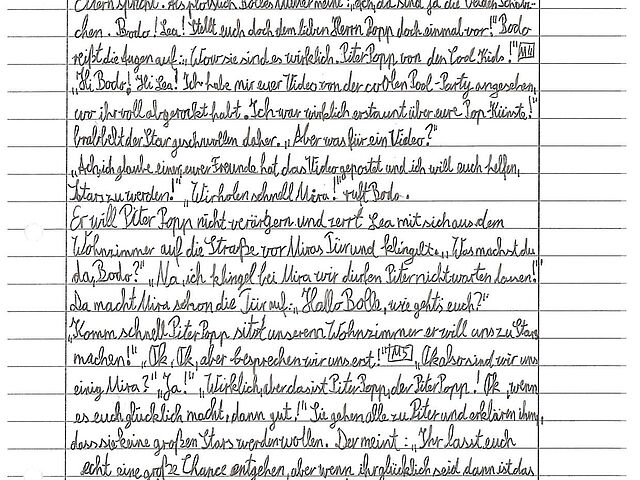 Eltern spricht. Als plötzlich Bolles Mutter meint: „Ach, da sind ja die beiden Schätz-
chen. Bodo! Lea! Stellt euch doch dem lieben Herrn Popp doch einmal vor!" Bodo
reißt die Augen auf: „Wow sie sind es wirklich. Piter Popp von den Cool Kids!" M4
„Hi Bodo! Hi Lea! Ich habe mir euer Video von der coolen Pool-Party angesehen,
wo ihr voll abgerockt habt. Ich war wirklich erstaunt über eure Pop-Künste!"
brabbelt der Star geschwollen daher. „Aber was für ein Video?"
„Ach, ich glaube einer eurer Freunde hat das Video gepostet und ich will euch helfen,
Stars zu werden!" „Wir holen schnell Mira!" ruft Bodo.
Er will Piter Popp nicht verärgern und zerrt Lea mit sich aus dem
Wohnzimmer auf die Straße vor Miras Tür und klingelt. „Was machst du
da, Bodo?" „Na, ich klingel bei Mira wir dürfen Piter nicht warten lassen!"
Da macht Mira schon die Tür auf: „Hallo Bolle, wie gehts euch?"
„Komm schnell Piter Popp sitzt unserem Wohnzimmer er will uns zu Stars
machen!" „Ok, Ok, aber besprechen wir uns erst!" M5 „Ok also sind wir uns
einig Mira?" „Ja!" „Wirklich, aber das ist Piter Popp, der Piter Popp! Ok, wenn
es euch glücklich macht, dann gut!" Sie gehen alle zu Piter und erklären ihm,
dass sie keine großen Stars werden wollen. Der meint: „Ihr lasst euch
echt eine große Chance entgehen, aber wenn ihr glücklich seid dann ist das